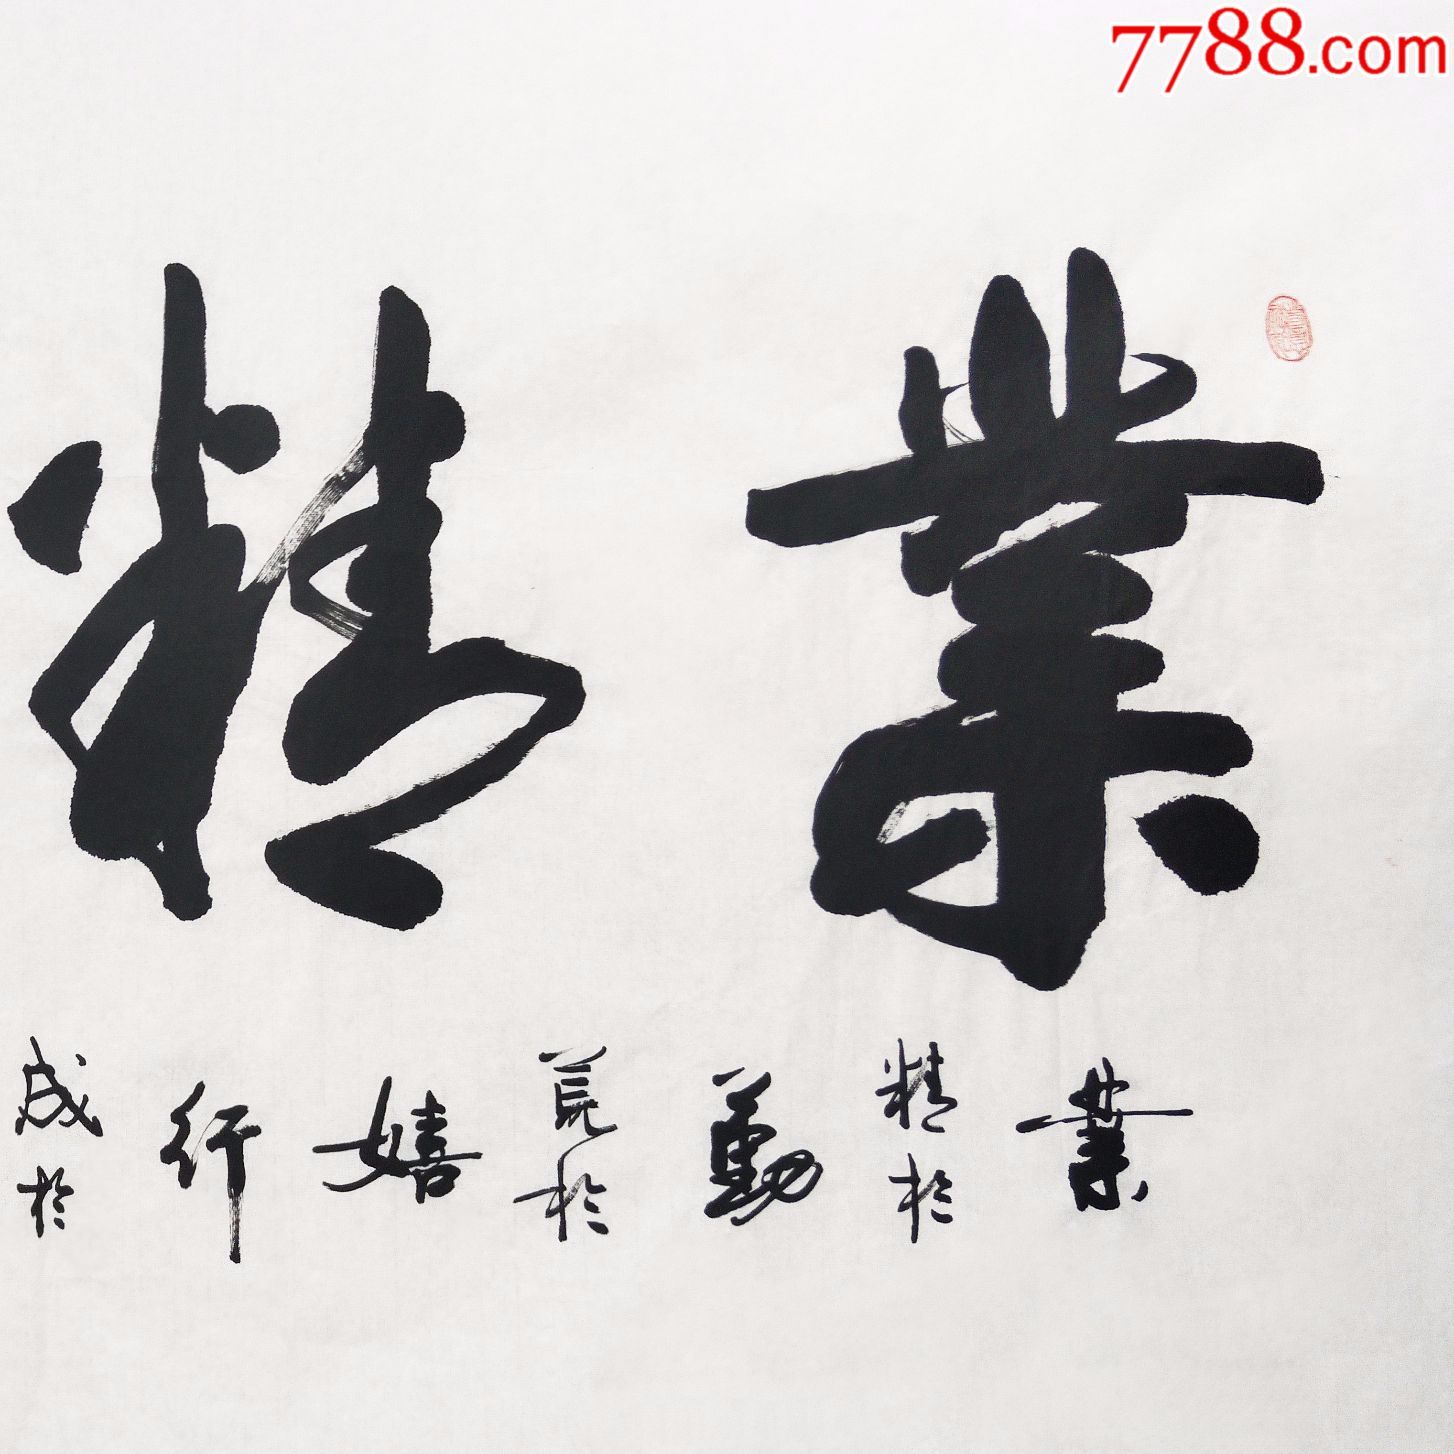 7788.com
業精
業
精於
勤
荒於
嬉
行
成於